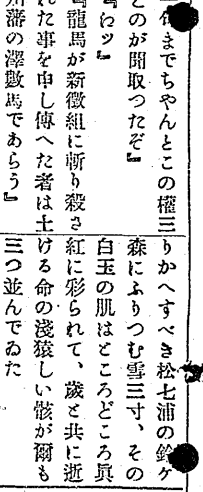 までちやんとこの權三
どのが聞取つたぞ』
『わツ』
『龍馬が新徴組に斬り殺さ
れた事を申し傳へた者は土
州藩の澤數馬であらう』
りかへすべき松七浦の鈴ケ
森にふりつむ雪三寸、その
白玉の肌はところどころ眞
紅に彩られて、歳と共に逝
ける命の淺猿しい骸が爾も
三つ並んでゐた